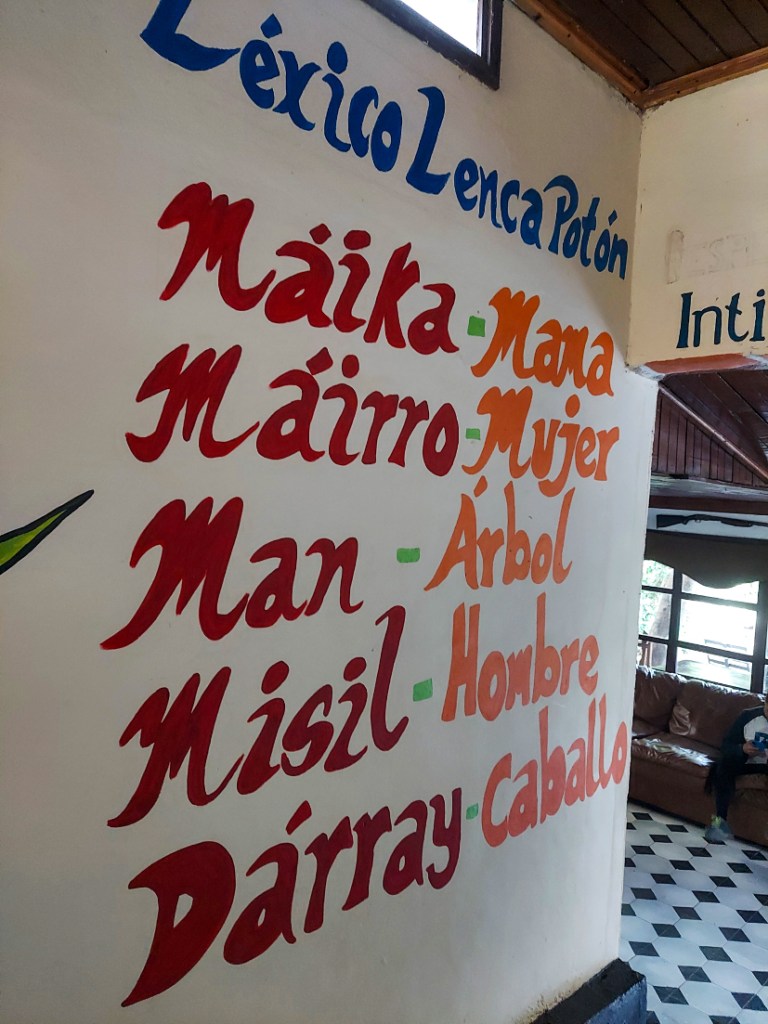 Léxico Lenca Potón
Máika - Mama
Máirro - Mujer
Man - Árbol
Misil - Hombre
Dárray - Caballo
Inti